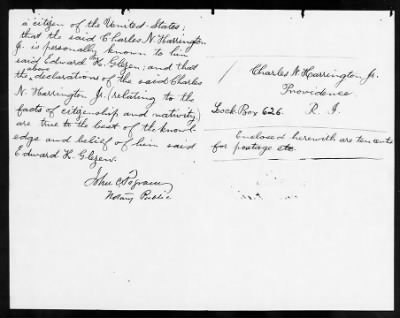 a citizen of the United States;
that the said Charles N. Harrington
Jr. is personally known to him
said Edward K. Glezen; and that
the above declarations of the said Charles
N. Harrington Jr. (relating to the
facts of citizenship and nativity)
are true to the best of the knowl-
edge and belief of him said
Edward K. Glezen.
John C.
Notary Public
Charles N. Harrington, Jr.
Providence
Lock Box 626. R. I.
Enclosed herewith are ten cents
for postage etc.